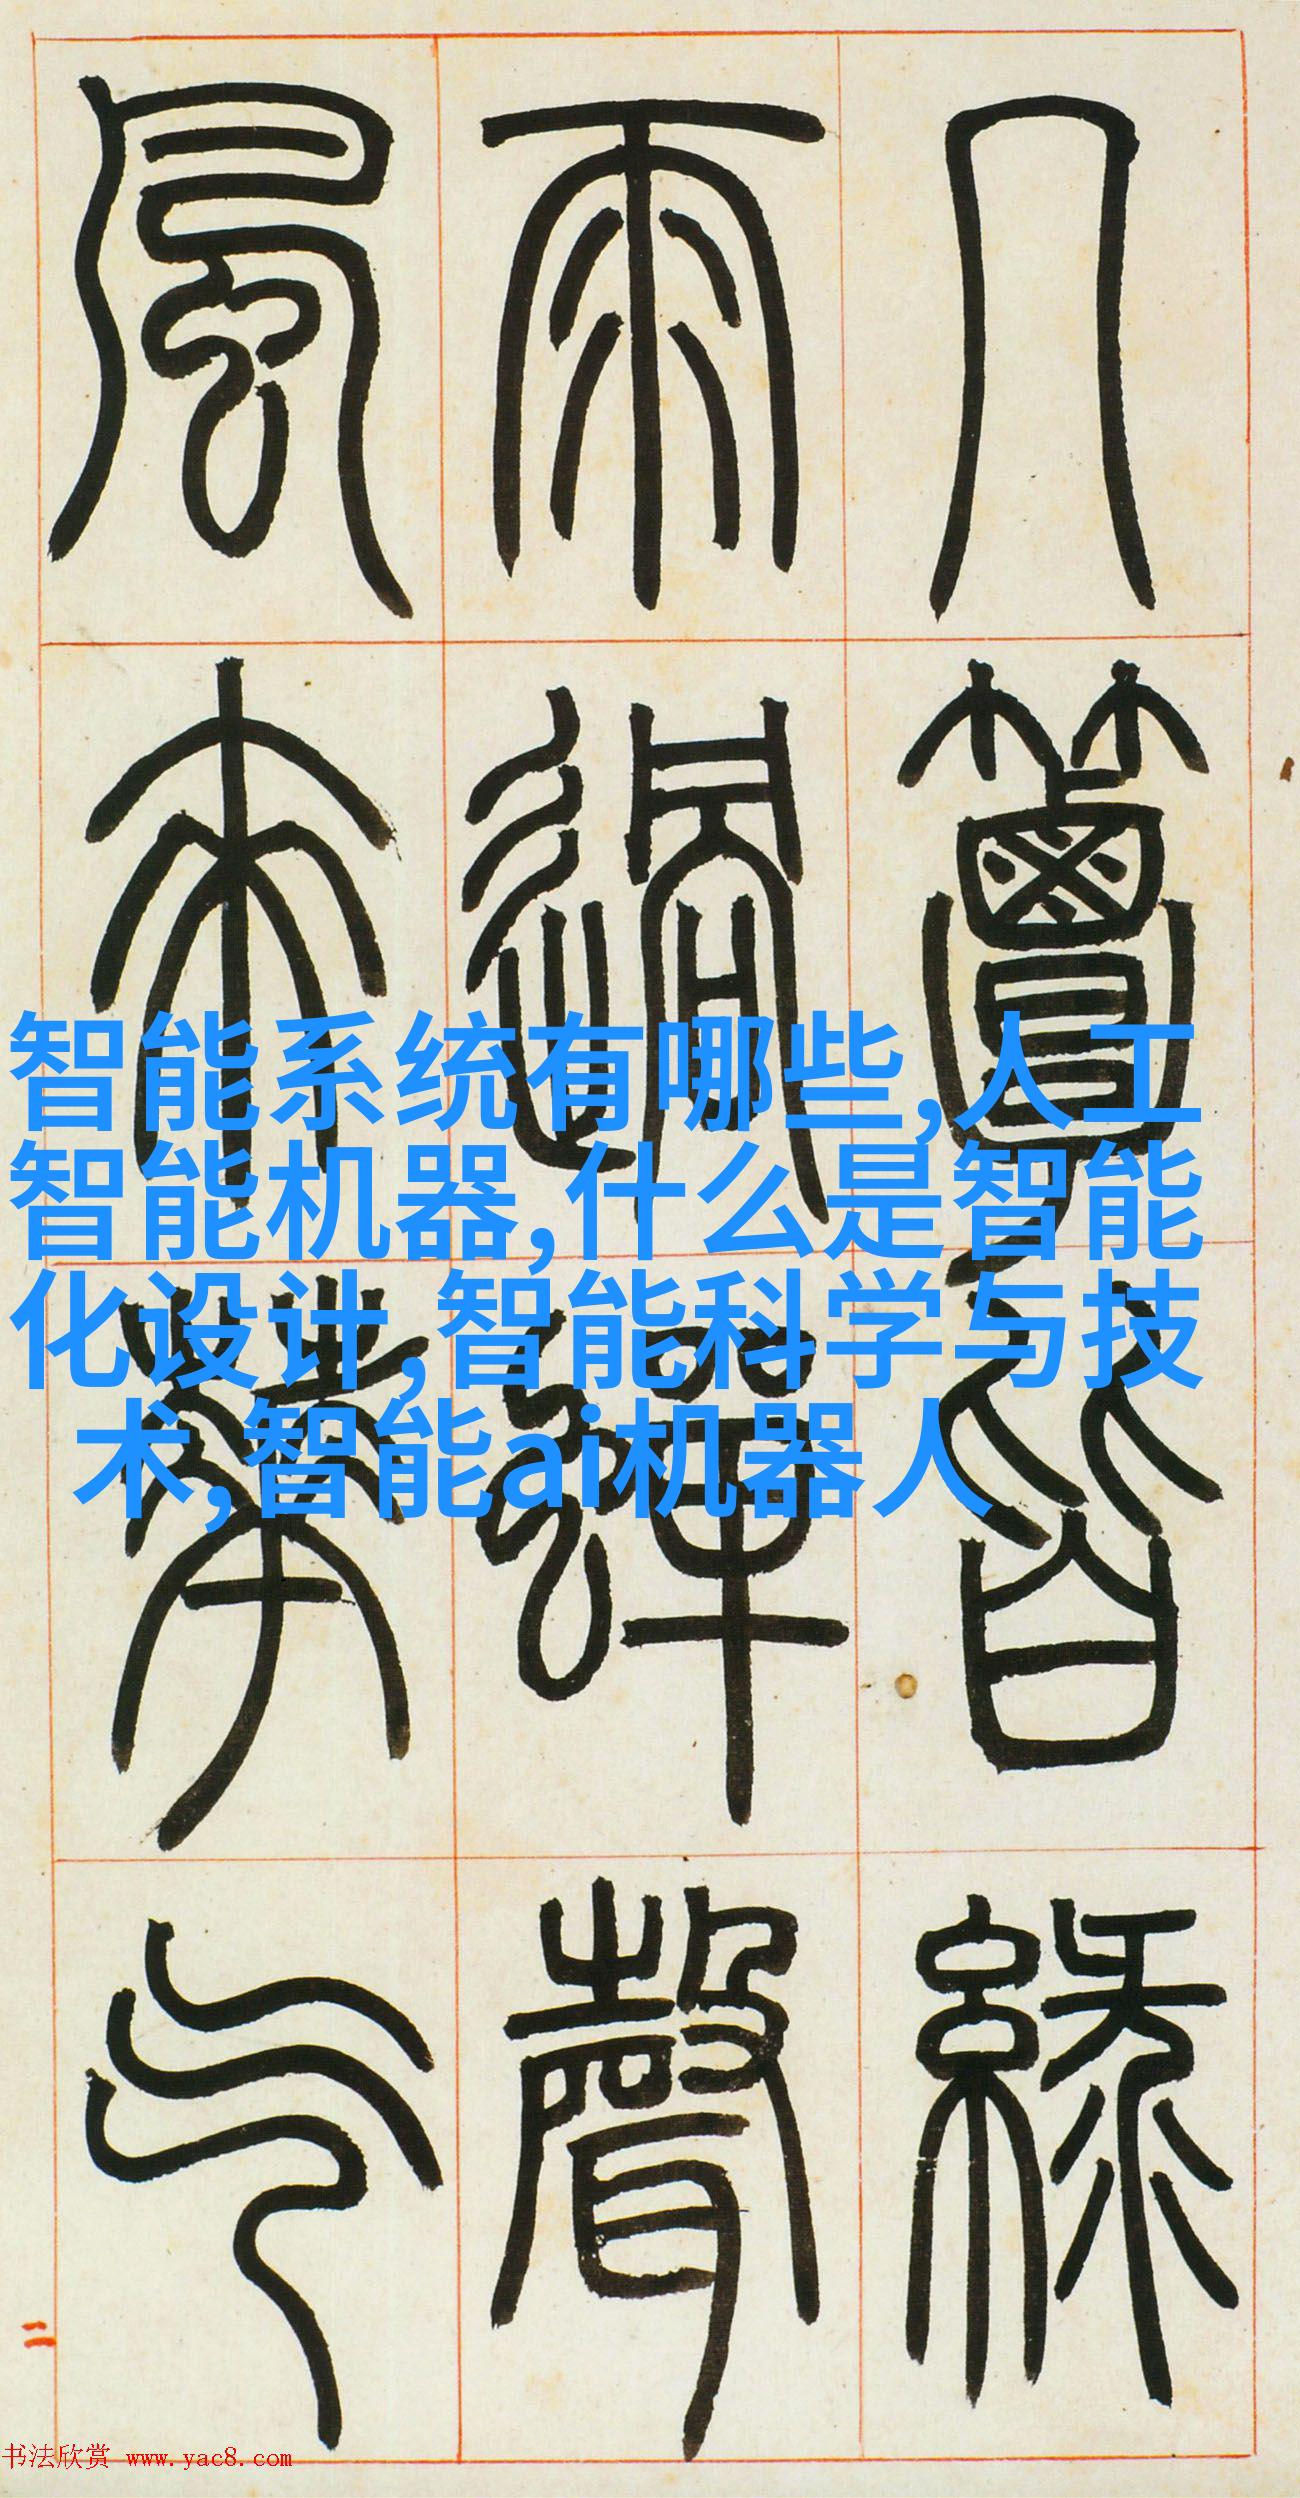 几簟皆綠
雨過蟬聲
風來華气
智能系统有哪些,人工
智能机器,什么是智能
化设计,智能科学与技
术,智能ai机器人
二
书法欣赏 www.yac8.com